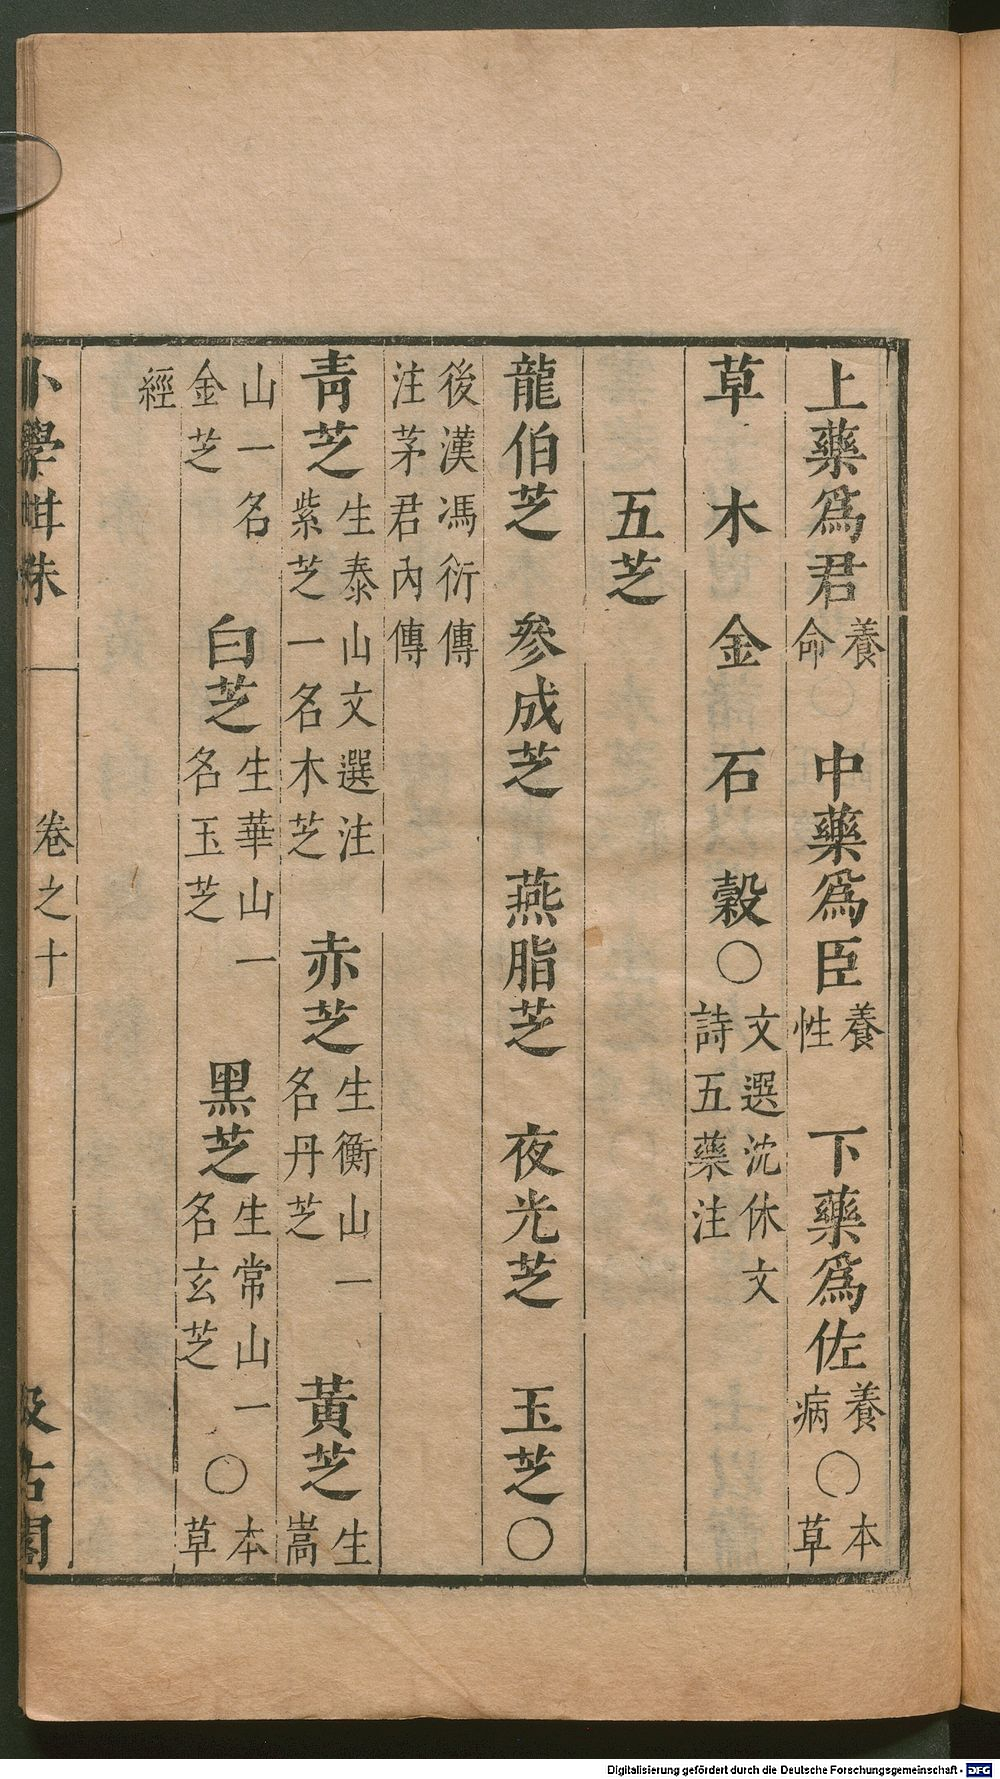 上藥爲君養命〇 中藥爲臣養性 下藥爲佐養病〇本草
草 木 金 石 穀〇文選沈休文詩五藥注
五芝
龍伯芝 參成芝 燕脂芝 夜光芝 玉芝〇
後漢馮衍傳注茅君內傳
青芝生泰山文選注紫芝一名木芝 赤芝生衡山一名丹芝 黃芝生嵩
山一名金芝 白芝生華山一名玉芝 黑芝生常山一名玄芝〇本草
經
小學紺珠 卷之十 汲古閣
Digitalisierung gefördert durch die Deutsche Forschungsgemeinschaft - DFG